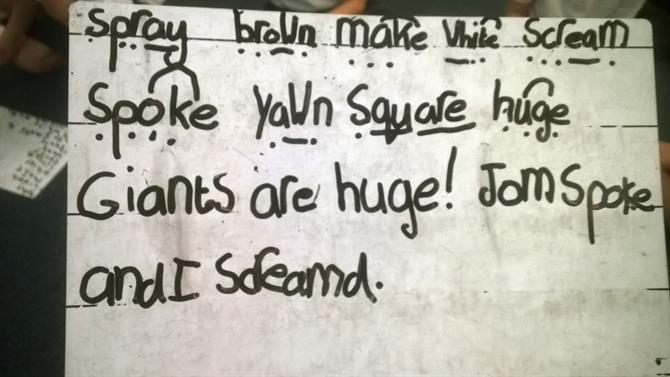 spray brown make white scream
Spoke yawn square huge
Giants are huge! Tom Spoke
and I screamd.